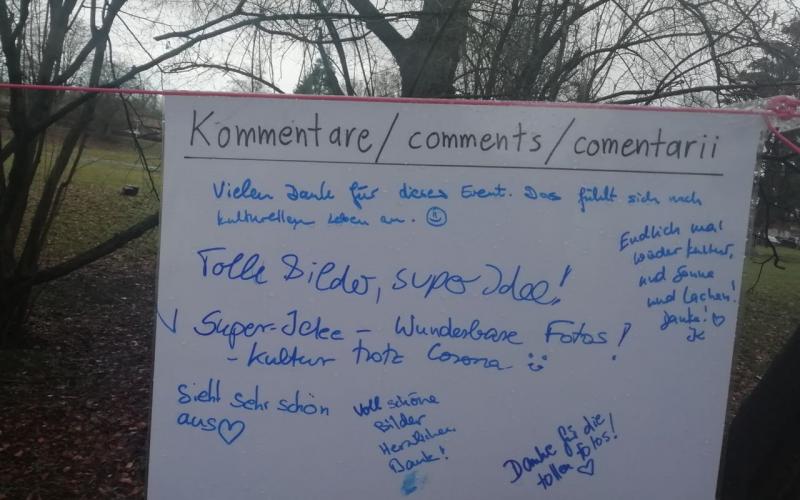 Kommentare / comments / comentarii
Vielen Dank für dieses Event. Das fühlt sich nach
kulturellem Leben an.
Endlich mal
wieder Kultur,
und Sonne
und Lachen!
Danke!
Tolle Bilder, super Idee!
Super-Idee - Wunderbare Fotos!
- Kultur trotz Corona
Sieht sehr schön
aus
Voll schöne
Bilder
Herzlichen
Dank!
Danke für die
tollen Fotos!